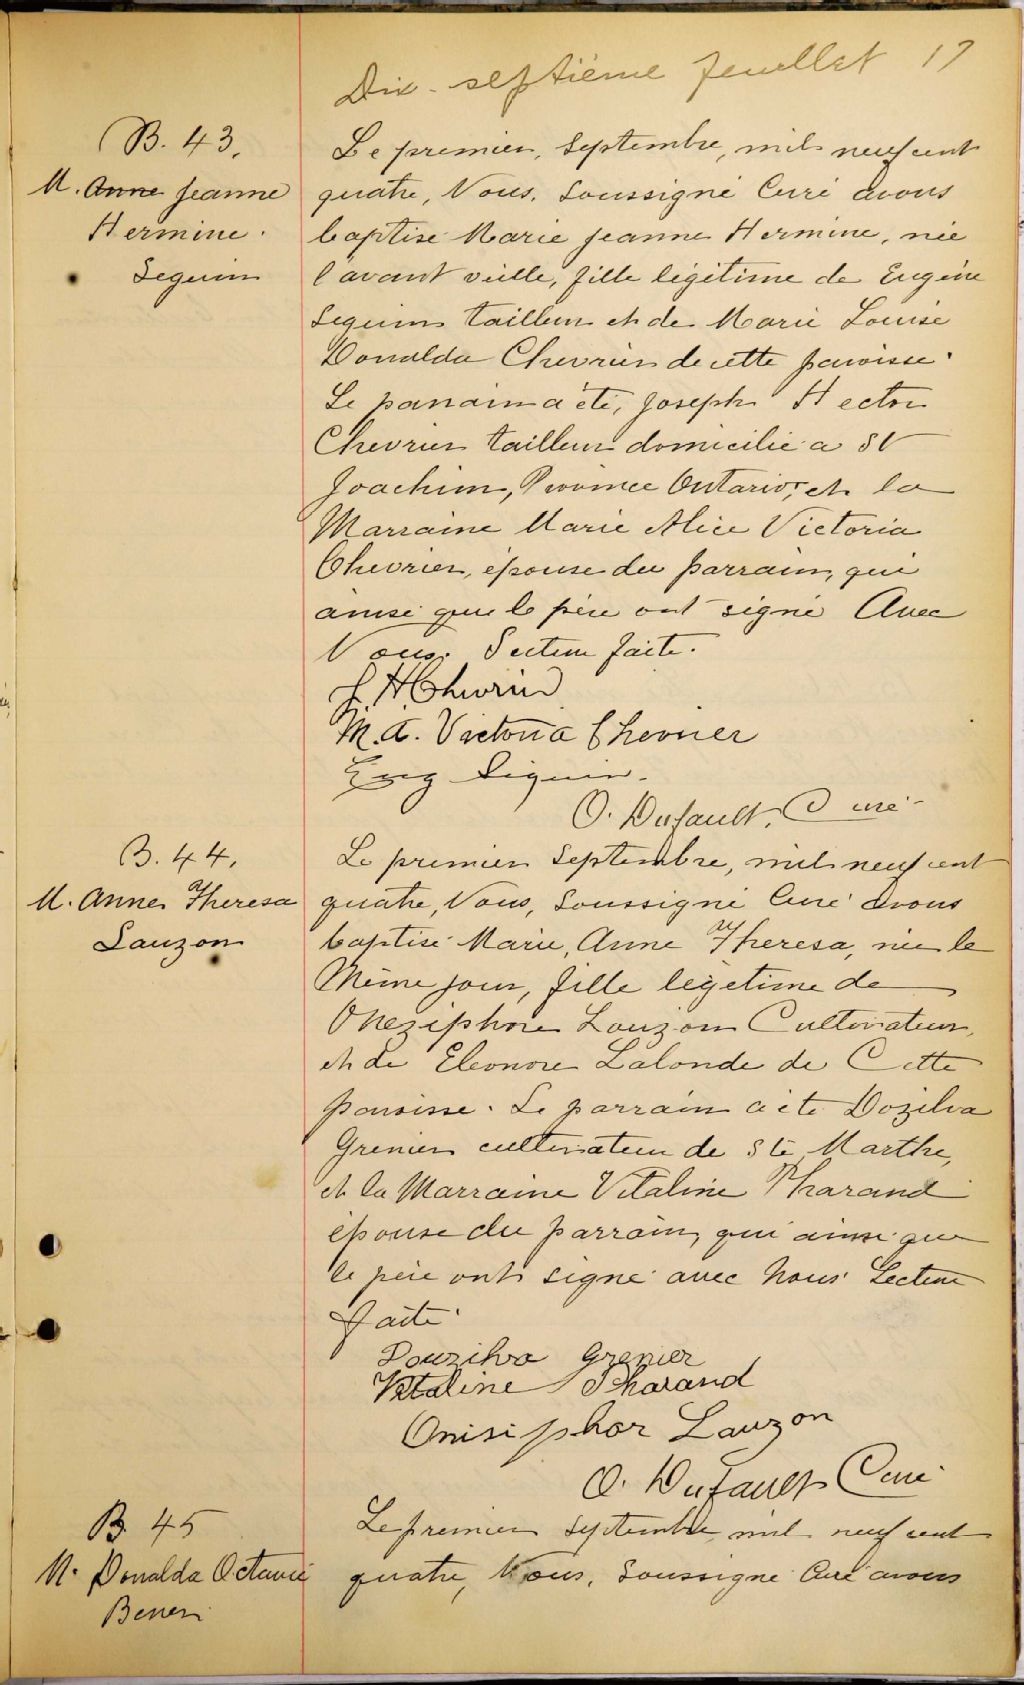 Dix-septième feuillet 17
B. 43.
M. Anne Jeanne
Hermine.
Seguin
Le premier, Septembre, mil neuf cent
quatre, Nous, Soussigné Curé avons
baptisé Marie Jeanne Hermine, née
l'avant veille, fille légitime de Eugène
Seguin tailleur et de Marie Louise
Donalda Chevrier de cette paroisse.
Le parrain a été, Joseph Hector
Chevrier tailleur domicilié a St
Joachim, Province Ontario, et la
Marraine Marie Alice Victoria
Chevrier, épouse du parrain, qui
ainsi que le père ont signé Avec
Nous. Lecture faite.
J H Chevrier
M. A. Victoria Chevrier
Eug Séguin.
O. Dufault, Curé
B. 44.
M. Anne Theresa
Lauzon
Le premier Septembre, mil neuf cent
quatre, Nous, Soussigné Curé avons
baptisé Marie, Anne Theresa, née le
Même jour, fille légetime de
Oneziphore Lauzon Cultivateur,
et de Eleonore Lalonde de Cette
paroisse. Le parrain a été Dozilva
Grenier cultivateur de Ste Marthe,
et la Marraine Vitaline Pharand
épouse du parrain, qui ainsi que
le père ont signé avec Nous. Lecture
faite.
Douzilva Grenier
Vitaline Pharand
Onisiphor Lauzon
O. Dufault Curé
B. 45
M. Donalda Octavie
Le premier Septembre, mil neuf cent
quatre, Nous, Soussigné Curé avons